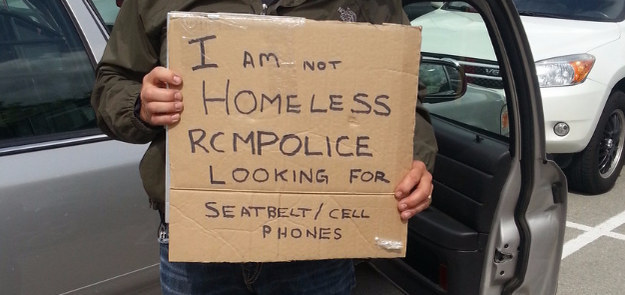 I AM NOT
HOMELESS
RCMPOLICE
LOOKING FOR
SEATBELT/CELL
PHONES